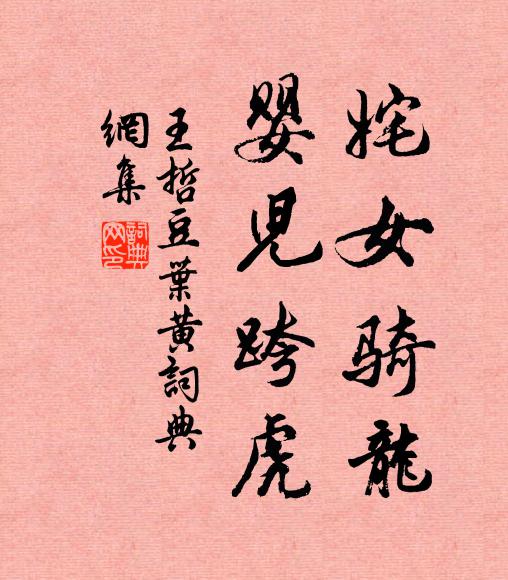 姹女骑龍
嬰児跨虎
王哲豆葉黄詞典
網集
詞典
网印